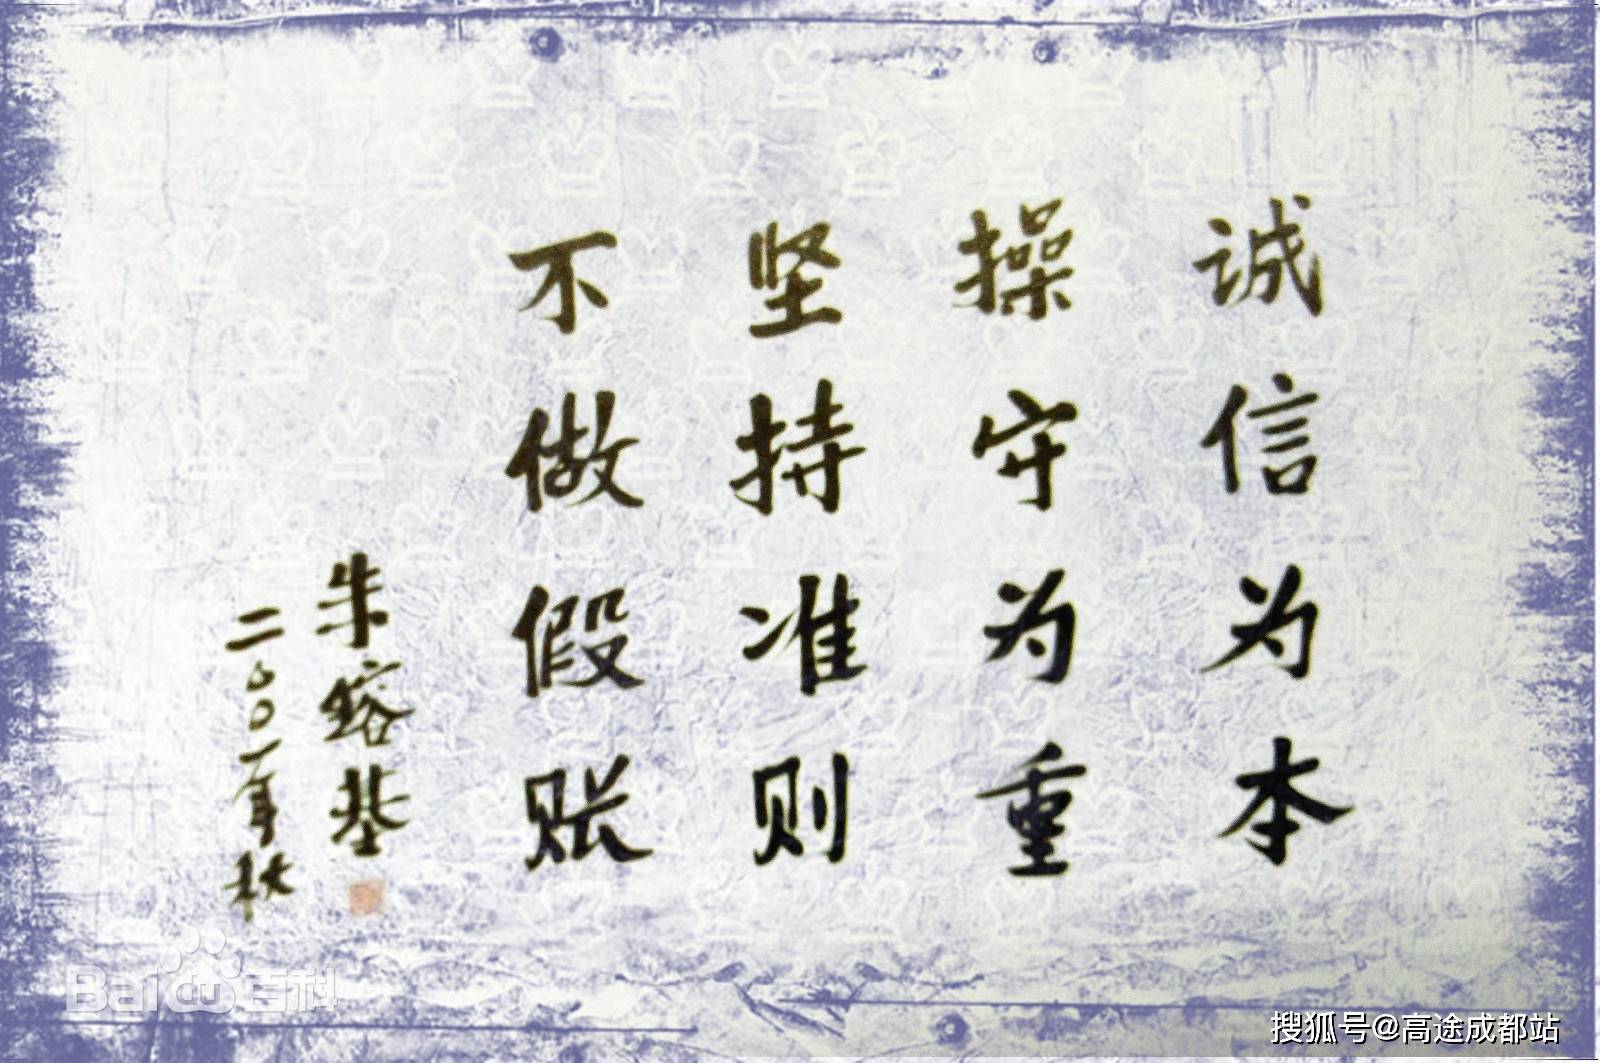 诚信为本
操守为重
坚持准则
不做假账
朱镕基
二〇〇一年秋
Baidu百科
搜狐号@高途成都站